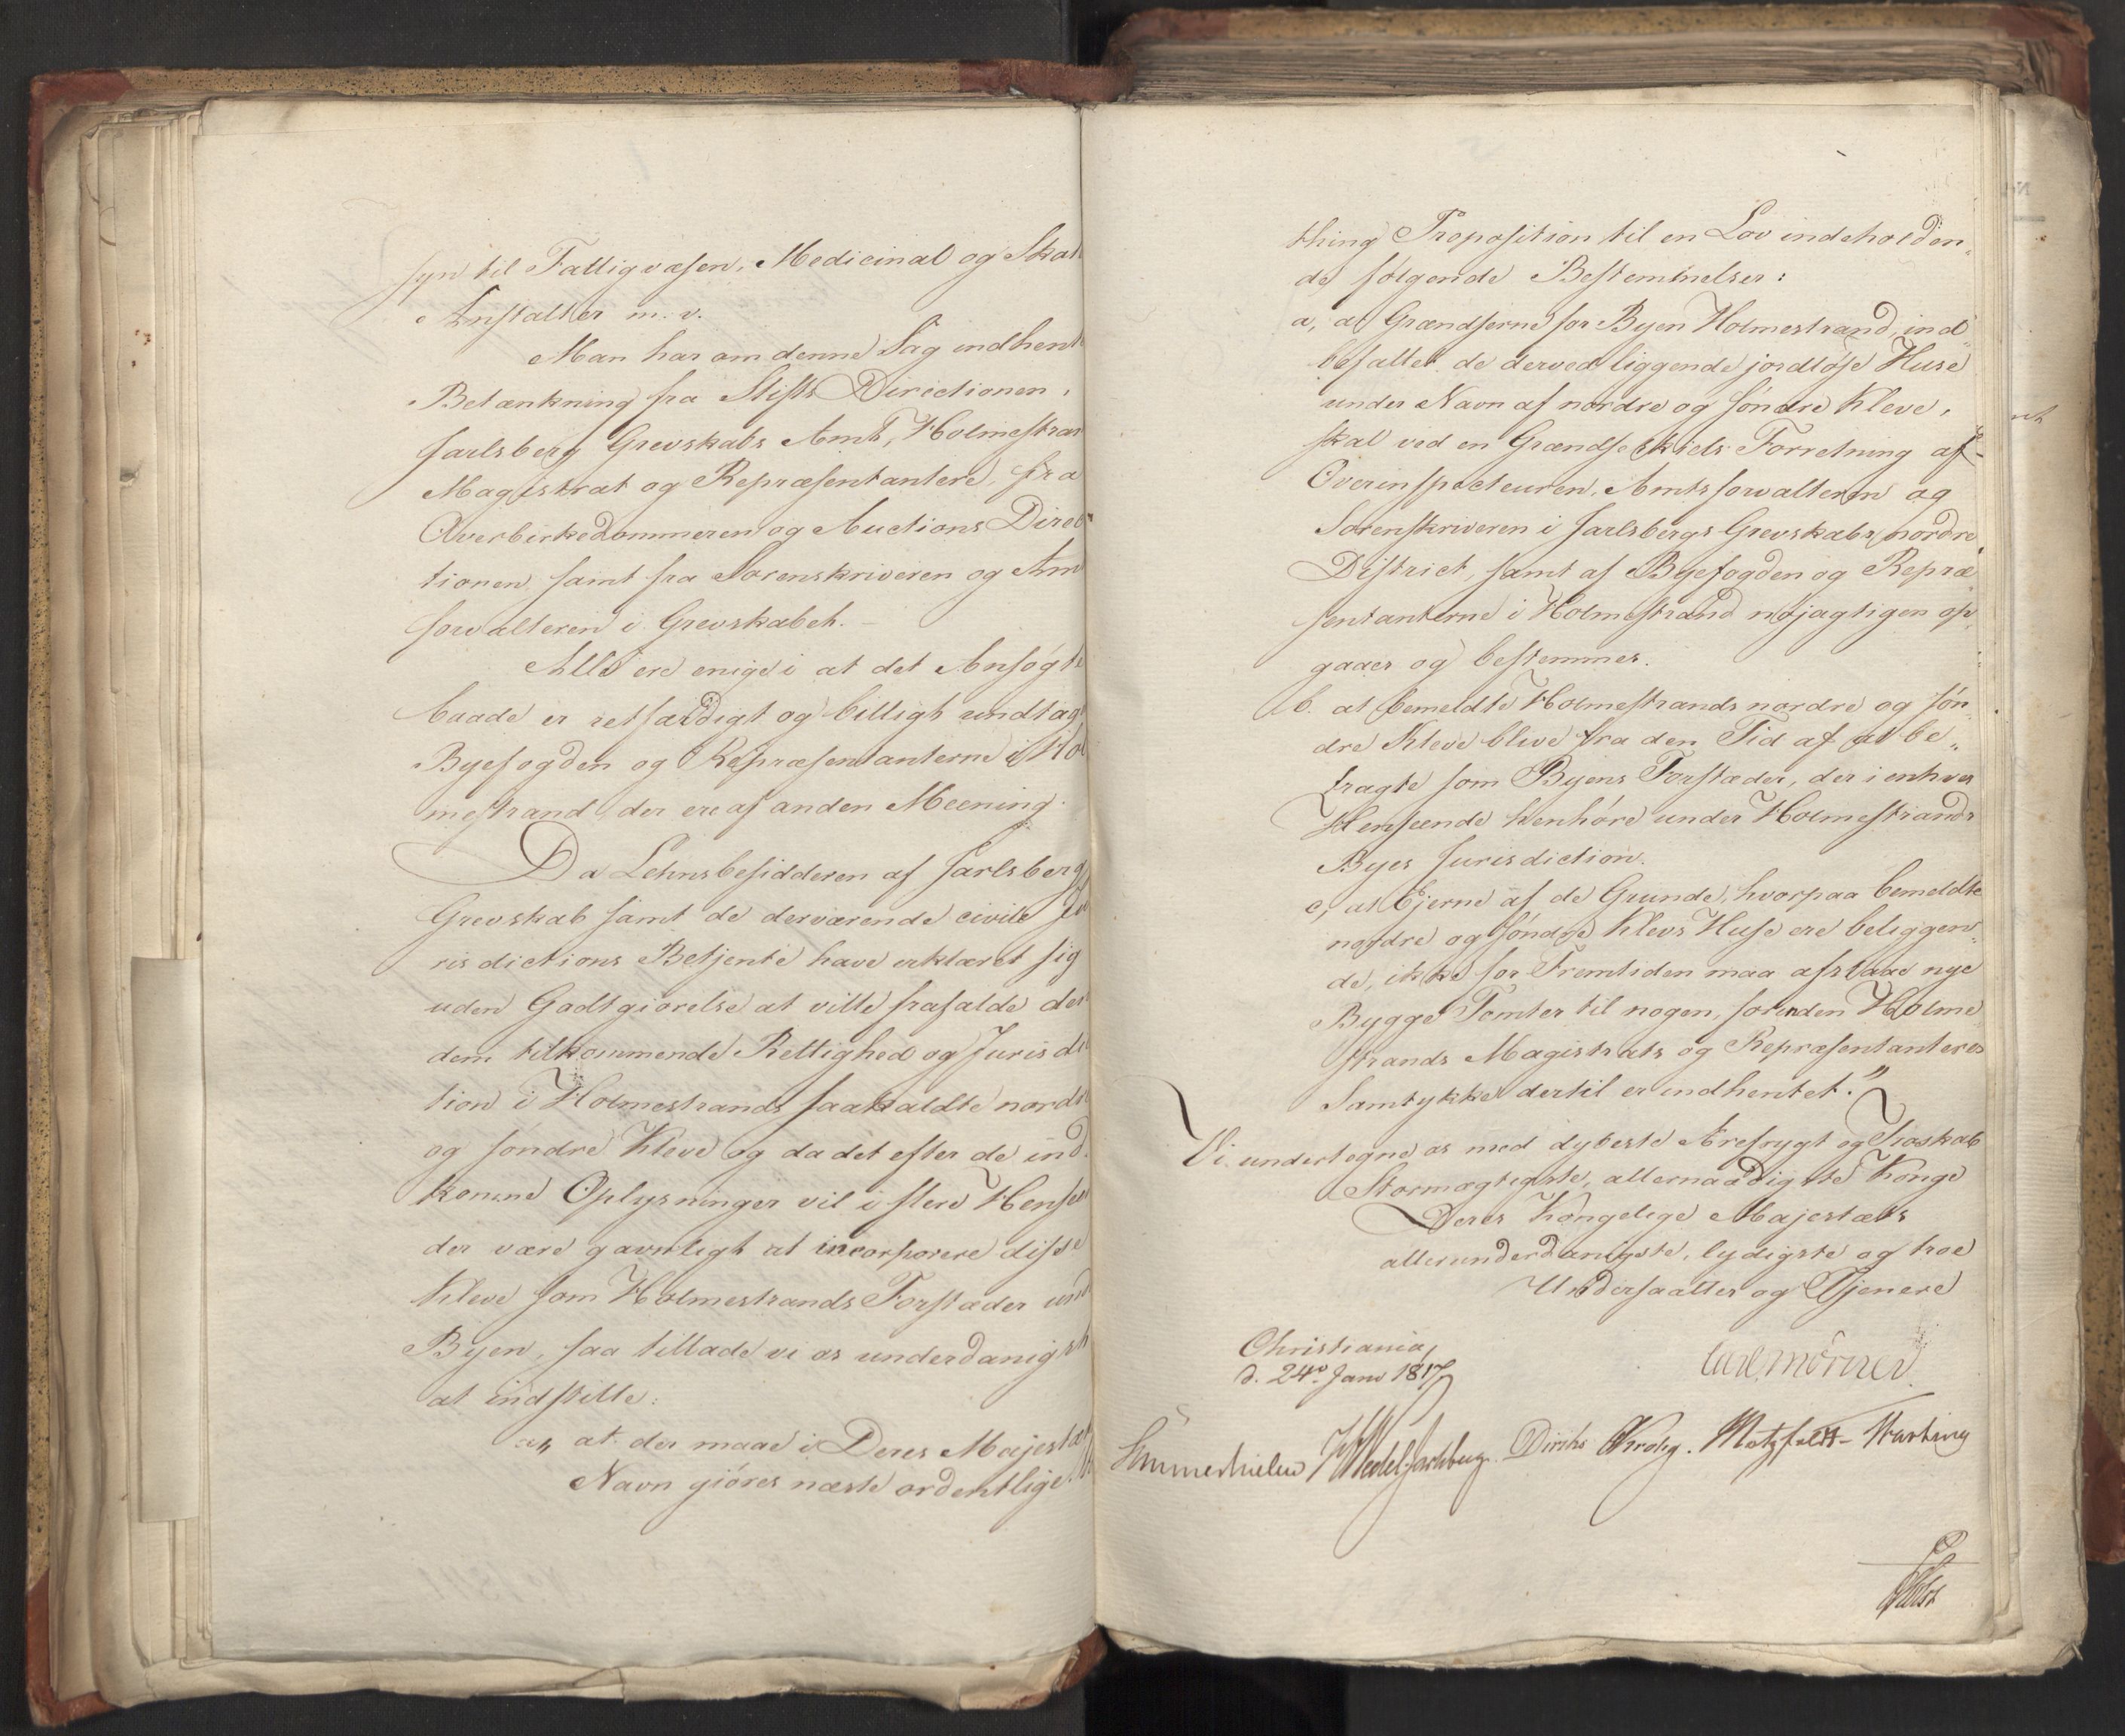 syn til Fattigvæsen, Medicinal og Skat
Anstalter m. v.
Man har om denne Sag indhent
Betænkning fra Stifts Directionen,
Jarlsberg Grevskabs Amt, Holmestran
Magistrat og Repræsentantere, fra
Overbirkedommeren og Auctions Direc
tionen samt fra Sorenskriveren og Am
forvalteren i Grevskabet.
Alle ere enige i at det Ansøgte
baade er retfærdigt og billigt undtag
Byefogden og Repræsentanterne i Hol
mestrand der ere af anden Meening.
Da Lehnsbesidderen af Jarlsberg
Grevskab samt de derværende civile Ju
risdictions Betjente have erklæret sig
uden Godtgiørelse at ville frafalde den
dem tilkommende Rettighed og Jurisdic
tion i Holmestrands saakaldte nordr
og søndre Kleve og da det efter de ind
komne Oplysninger vil i flere Hense
der være gavnligt at incorporere disse
Kleve som Holmestrands Forstæder und
Byen, saa tillade vi os underdanigst
at indstille:
"at der maae i Deres Majestæt
Navn giøres næste ordentlige
thing Proposition til en Lov indeholden„
de følgende Bestemmelser:
a, at Grændserne for Byen Holmestrand, ind„
befattet de derved liggende jordløse Huse
under Navn af nordre og søndre Kleve,
skal ved en Grændseskiels Forretning af
Overinspecteuren, Amtsforvalteren og
Sorenskriveren i Jarlsbergs Grevskabs nordre
District, samt af Byefogden og Repræ
sentanterne i Holmestrand nøjagtigen op„
gaaes og bestemmes.
b. at bemeldte Holmestrands nordre og søn„
dre Kleve blive fra den Tid af at be„
tragte som Byens Forstæder, der i enhver
Henseende henhøre under Holmestrands
Byes Jurisdiction.
c, at Ejerne af de Grunde, hvorpaa bemeldte
nordre og søndre Klevs Huse ere beliggen„
de, ikke for Fremtiden maa afstaae nye
Bygge Tomter til nogen, forinden Holme
strands Magistrats og Repræsentanteres
Samtykke dertil er indhentet."
Vi undertegne os med dybeste Ærefrygt og Troskab
Stormægtigste, allernaadigste Konge
Deres Kongelige Majestæts
allerunderdanigste, lydigste og troe
Undersaatter og Tjenere
Christiania,
d. 24de Janr 1817
Carl Mörner
Sommerhielm HWedel-Jarlsberg. Diriks Krohg. Motzfeldt
Holst